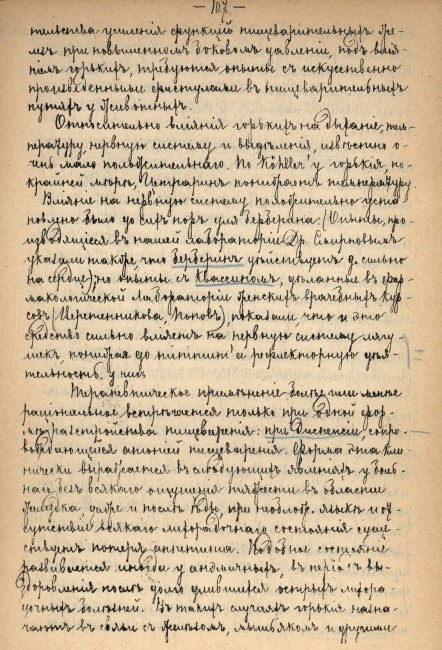 — 107 —
тельства усиленія функцій пищеварительныхъ же-
лезъ при повышенномъ боковомъ давленіи, подъ влія-
ніемъ горькихъ, требуются опыты съ искусственно
произведенными фистулами въ пищеварительныхъ
путяхъ у животныхъ.
Относительно вліянія горькихъ на дыханіе, тем-
пературу, нервную систему и выдѣленія, извѣстно о-
чень мало положительнаго. По Köhler'у горькія, по
крайней мѣрѣ, Цетраринъ понижаетъ температуру.
Вліяніе на нервную систему положительно уста-
новлено было до сихъ поръ для берберина. (Опыты, про-
изводящіеся въ нашей лабораторіи Др. Смирновымъ
указали также, что берберинъ дѣйствуетъ д. сильно
на сердце); но опыты съ Квассиномъ, сдѣланные въ фар-
макологической лабораторіи женскихъ врачебныхъ кур-
совъ (Черепенникова, Поповъ), показали, что и это
средство сильно вліяетъ на нервную систему лягу
шекъ, понижая до minimum'а рефлекторную дѣя-
тельность у нихъ
Терапевтическое примѣненіе болѣе или менѣе
раціональное встрѣчается только при одной фор-
мѣ разстройства пищеваренія: при диспепсіи, сопро-
вождающейся атоніей пищеваренія. Форма эта кли-
нически выражается въ слѣдующихъ явленіяхъ у боль-
ныхъ: безъ всякаго ощущенія тяжести въ области
желудка, даже и послѣ ѣды, при необлож. языкѣ и от-
сутствіи всякаго лихорадочнаго состоянія суще-
ствуетъ потеря аппетита. Подобное состояніе
развивается иногда у анэмичныхъ, въ періодъ вы-
здоровленія послѣ долго длившихся острыхъ лихора
дочныхъ болѣзней. Въ такихъ случаяхъ горькія назна-
чаютъ въ связи съ желѣзомъ, мышьякомъ и другими